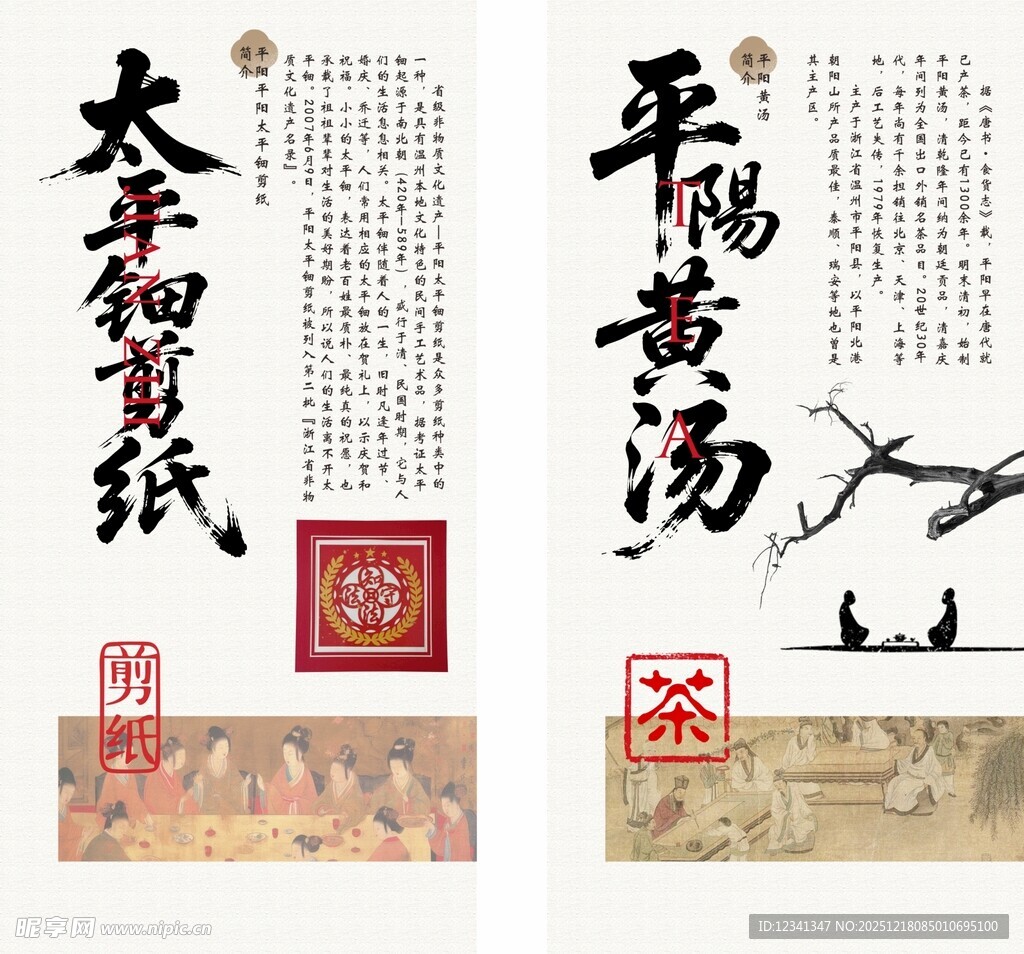 太平钿剪纸
JIAN ZHI
简介
平阳平阳太平钿剪纸
省级非物质文化遗产—平阳太平钿剪纸是众多剪纸种类中的
一种，是具有温州本地文化特色的民间手工艺术品，据考证太平
钿起源于南北朝（420年—589年），盛行于清、民国时期，它与人
们的生活息息相关。太平钿伴随着人的一生，旧时凡逢年过节、
婚庆、乔迁等，人们常用相应的太平钿放在贺礼上，以示庆贺和
祝福。小小的太平钿，表达着老百姓最质朴、最纯真的祝愿，也
承载了祖祖辈辈对生活的美好期盼，所以说人们的生活离不开太
平钿。2007年6月9日，平阳太平钿剪纸被列入第二批『浙江省非物
质文化遗产名录』。
知守法法
剪纸
平陽黄汤
TEA
简介
平阳黄汤
据《唐书·食货志》载，平阳早在唐代就
已产茶，距今已有1300余年。明末清初，始制
平阳黄汤，清乾隆年间纳为朝廷贡品，清嘉庆
年间列为全国出口外销名茶品目。20世纪30年
代，每年尚有千余担销往北京、天津、上海等
地，后工艺失传，1979年恢复生产。
主产于浙江省温州市平阳县，以平阳北港
朝阳山所产品质最佳，泰顺、瑞安等地也曾是
其主产区。
茶
昵享网 www.nipic.cn
ID:12341347 NO:20251218085010695100